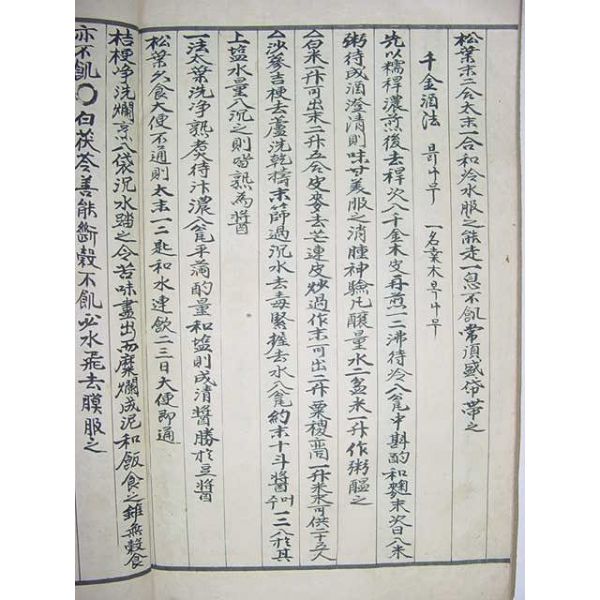 松葉末二合太末一合和冷水服之能走一息不飢常須盛俗帶之
千金酒法 一名業木
先以糯稈濃煎後去稈次入千金木皮再煎一二沸待冷入瓮中斟酌和麴末次日入米
粥待成酒澄清則味甘美服之消腫神驗凡釀量水二盆米一升作粥醞之
白米一升可出末二升五合皮麥去芒連皮炒過作末可出二升粟稷亦同一升米末可供二十五人
沙參吉梗去蘆洗乾擣末篩過沉水去毒緊握去水入瓮約末十斗醬
上塩水量入沉之則當熟為醬
一法太葉洗净熟煮待汁濃入瓮平滿酌量和塩則成清醬勝於豆醬
松葉久食大便不通則太末一二匙和水連飲二三日大便即通
桔梗净洗爛烹入袋沉水踏之令苦味盡出而糜爛成泥和飯食之雖無穀食
亦不飢〇白茯苓善能斷穀不飢必水飛去膜服之